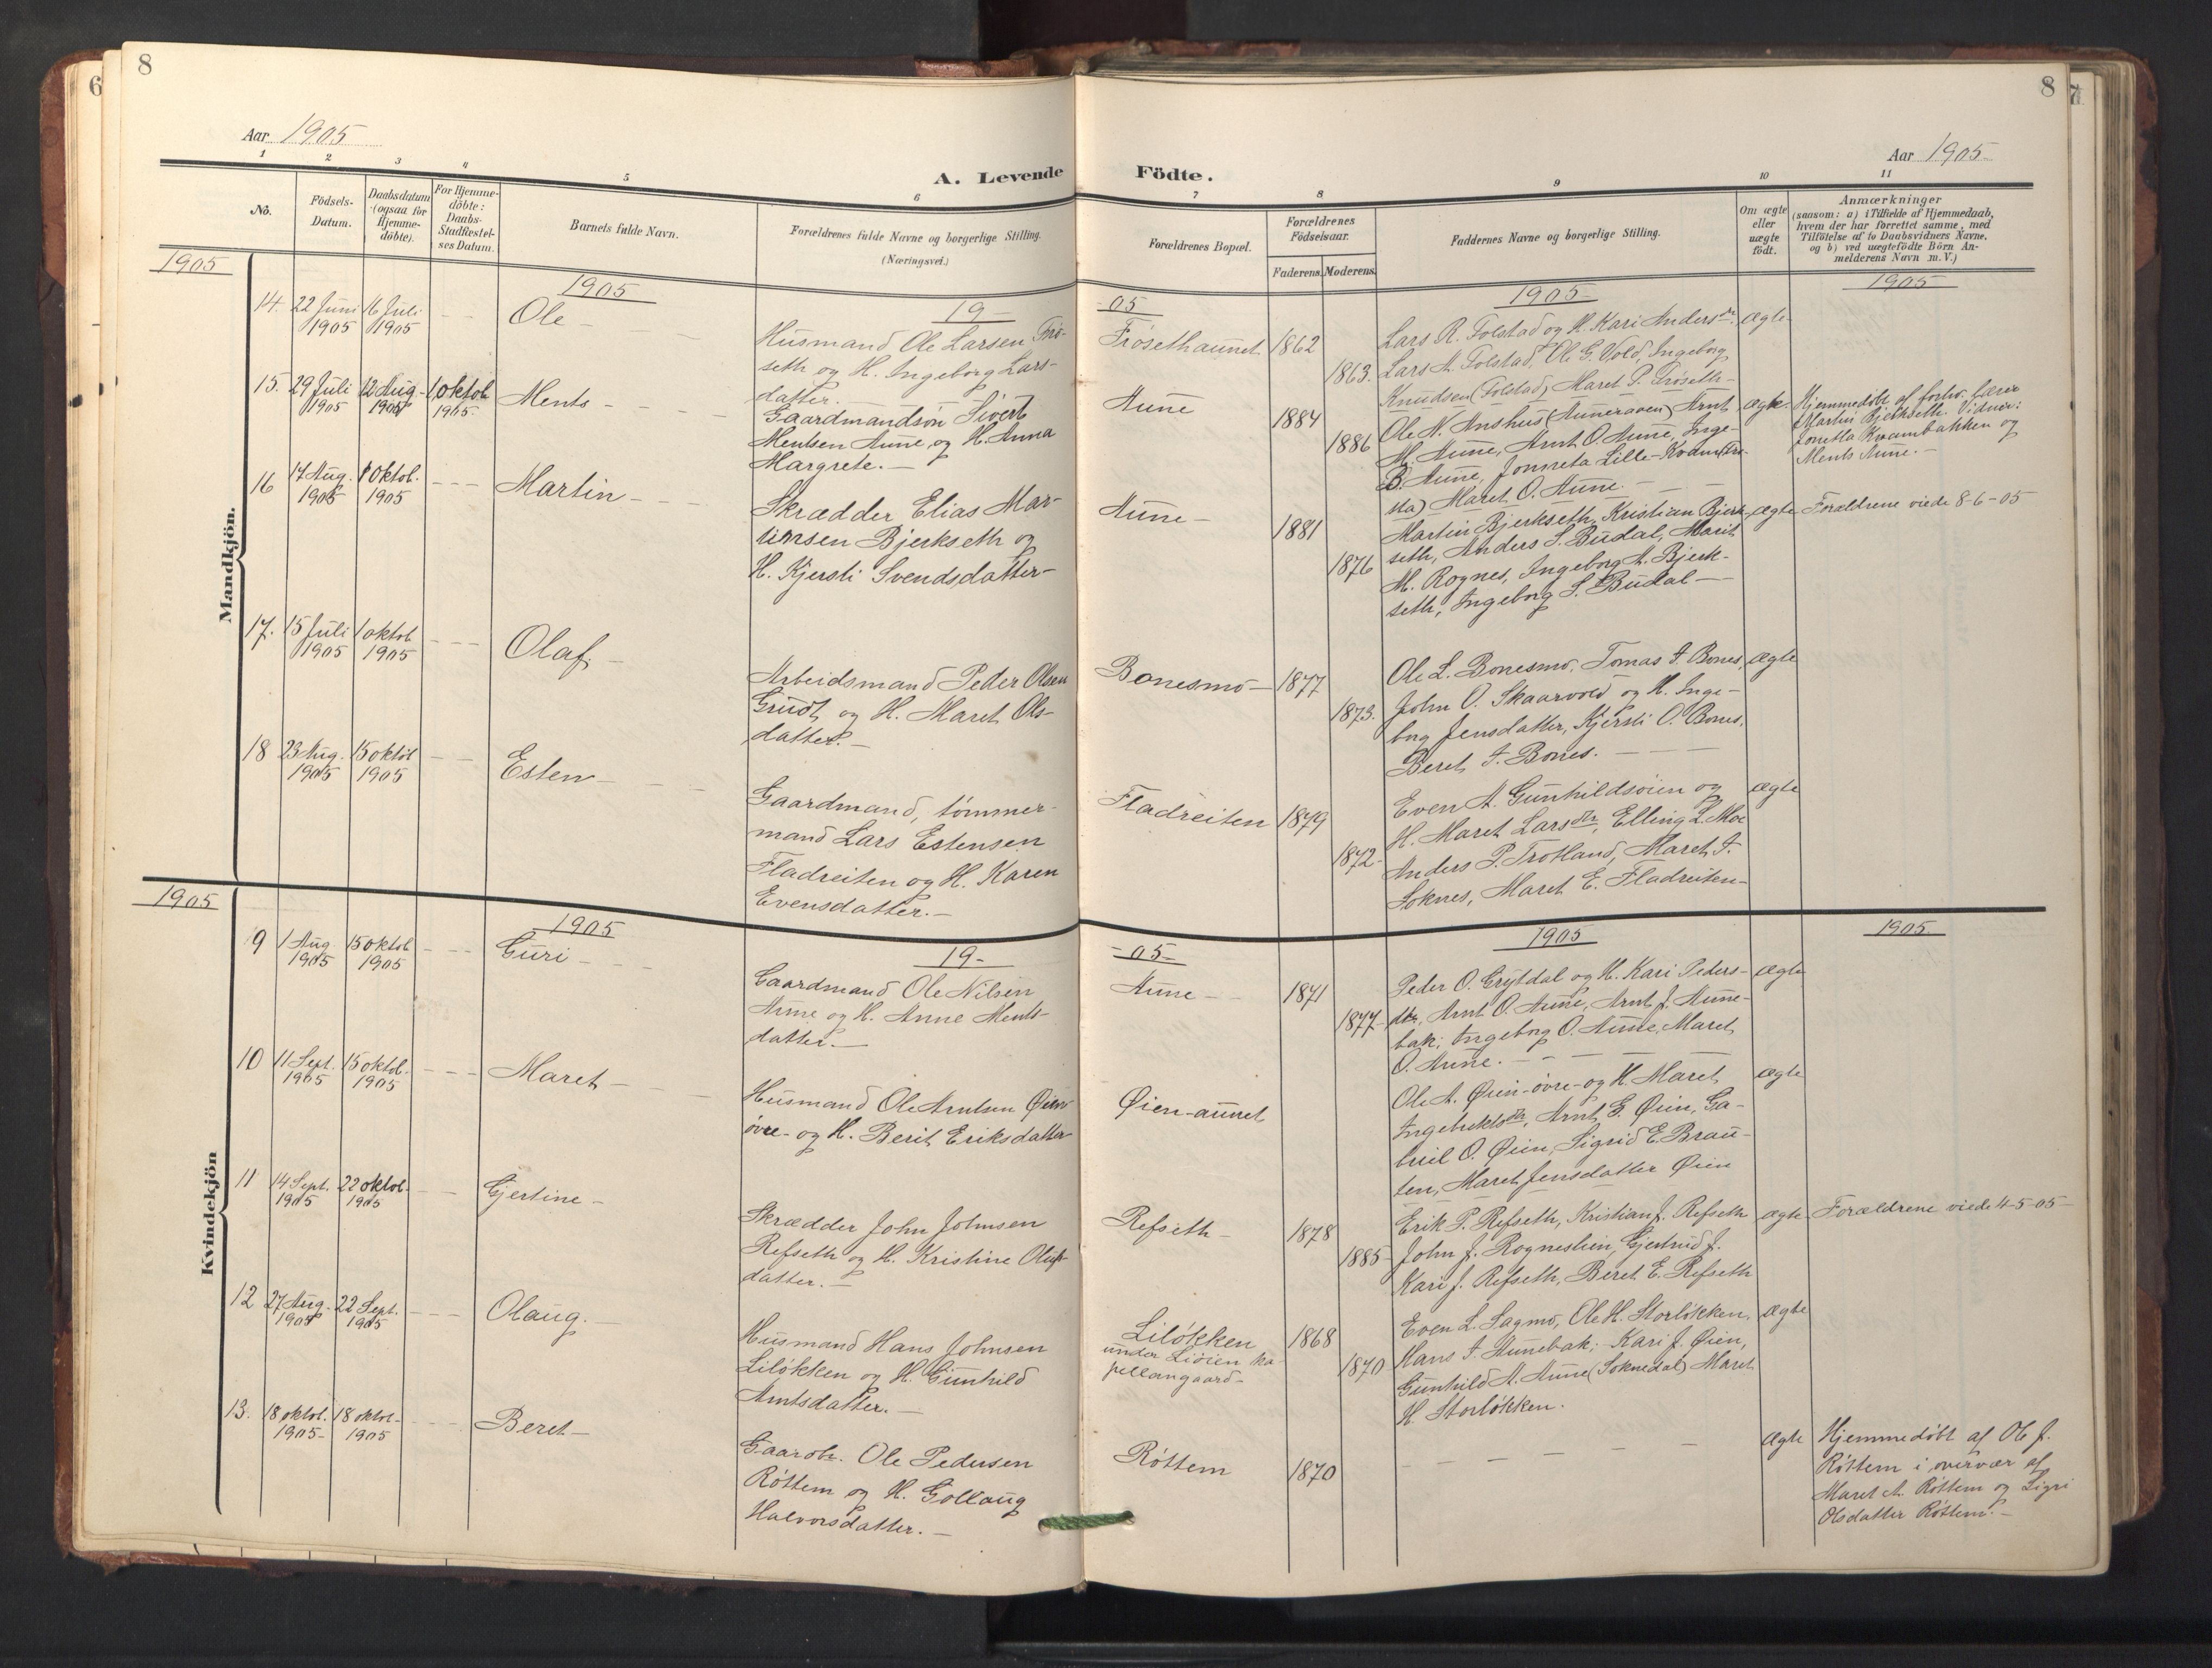 6
8
8
7
Aar 1905
Aar 1905
A. Levende Födte.
1
2
3
4
5
6
7
8
9
10
11
No.
Födsels-
Datum.
Daabsdatum
(ogsaa for
Hjemme-
döbte).
For Hjemme-
döbte:
Daabs-
Stadfæstel-
ses Datum.
Barnets fulde Navn.
Forældrenes fulde Navne og borgerlige Stilling.
(Næringsvei.)
Forældrenes Bopæl.
Forældrenes
Födselsaar.
Faderens.
Moderens.
Faddernes Navne og borgerlige Stilling.
Om ægte
eller
uægte
födt.
Anmærkninger
(saasom: a) i Tilfælde af Hjemmedaab,
hvem der har forrettet samme, med
Tilföielse af to Daabsvidners Navne,
og b) ved uægtefödte Börn An-
melderens Navn m. V.)
Mandkjön.
1905
1905
19-
-05
1905
1905
14.
22 Juni
1905
16 Juli
1905
Ole
Husmand Ole Larsen Frö-
seth og H. Ingeborg Lars-
datter.
Frösethaunet
1862
1863.
Lars R. Folstad og H. Kari Andersdr.
Lars A. Folstad, Ole G. Vold, Ingeborg
Knudsen (Folstad) Maret P. Fröseth
ægte
15.
29 Juli
1905
12 Aug.
1905
1 oktob
1905
Ments
Gaardmandsön Sivert
Mentsen Aune, og H. Anna
Margrete.
Aune
1884
1886
Ole N. Anshus (Auneraven) Arnt
M. Aune, Arnt O. Aune, Inge-
B. Aune, Jonneta Lille-
Maret O. Aune.
ægte.
Hjemmedöbt af forhv. lærer
Martin Bjerkseth. Vidner:
Jonetta Kvambakken og
Ments Aune.
16
17 Aug.
1905
1 Oktob.
1905
Martin
Skrædder Elias Mar-
tinsen Bjerkseth og
H. Kjersti Svendsdatter
Aune
1881
1876
Martin Bjerkseth, Kristian Bjerk-
seth, Anders S. Budal, Marit
M. Rognes, Ingeborg A. Bjerk-
seth, Ingeborg S. Budal
ægte
Forældrene viede 8-6-05
17.
15 Juli
1905
1 oktob
1905
Olaf.
Arbeidsmand Peder Olsen
Grudt og H. Maret Ols-
datter.
Bonesmo
1877
1873.
Ole L. Bonesmo, Tomas I. Bones,
John O. Skaarvold og H. Inge-
borg Jensdatter, Kjersti O. Bones,
Beret I. Bones.
ægte
18
23 Aug.
1905
15 oktob
1905
Esten
Gaardmand, tömmer-
mand Lars Estensen
Fladreiten og H. Karen
Evensdatter.
Fladreiten
1879
1872
Even A. Gunhildsöien og
H. Maret Larsdtr, Elling L. Moe
Anders P. Trotland, Maret I.
Soknes, Maret E. Fladreiten
ægte
Kvindekjön
1905
1905
19-
-05
1905
1905
9
1 Aug
1905
15 oktob
1905
Guri
Gaardmand Ole Nilsen
Aune og H. Anne Ments-
datter.
Aune
1871
1877
Peder O. Grytdal og H. Kari Peders-
dtr, Arnt O. Aune, Arnt J. Aune-
bak; Ingeborg O. Aune, Maret
O. Aune.
ægte
10
11 Sept.
1905
15 oktob.
1905
Maret
Husmand Ole Arntsen Öien
övre og H. Berit Eriksdatter
Øien-aunet
Ole A. Øien-övre og H. Maret
Ingebrektsdtr, Arnt E. Øien, Ga-
briel O. Øien, Sigrid E. Brau-
ten, Maret Jensdatter Øien
ægte
11
14 Sept.
1905
22 oktob.
1905
Gjertine
Skrædder John Johnsen
Refseth og H. Kristine Olufs-
datter.
Refseth
1878
1885
Erik P. Refseth, Kristian J. Refseth
John J. Rogneslien, Gjertrud J.
Kari J. Refseth, Beret E. Refseth
ægte
Forældrene viede 4-5-05
12
27 Aug.
1905
22 Sept.
1905
Olaug.
Husmand Hans Johnsen
Lilökken og H. Gunhild
Arntsdatter.
Lilökken
under Liöien ka-
pellangaard
1868
1870
Even L. Sagmo, Ole H. Storlökken,
Hans I. Aunebak; Kari J. Øien,
Gunhild A. Aune (Soknedal) Maret
H. Storlökken.
ægte
13.
18 oktob.
1905
18 oktob.
1905
Beret
Gaardbr. Ole Pedersen
Röttem og H. Gollaug
Halvorsdatter.
Röttem
1870
ægte
Hjemmedöbt af Ole J.
Röttem i overvær af
Maret A. Röttem og Sigri
Olsdatter Röttem.